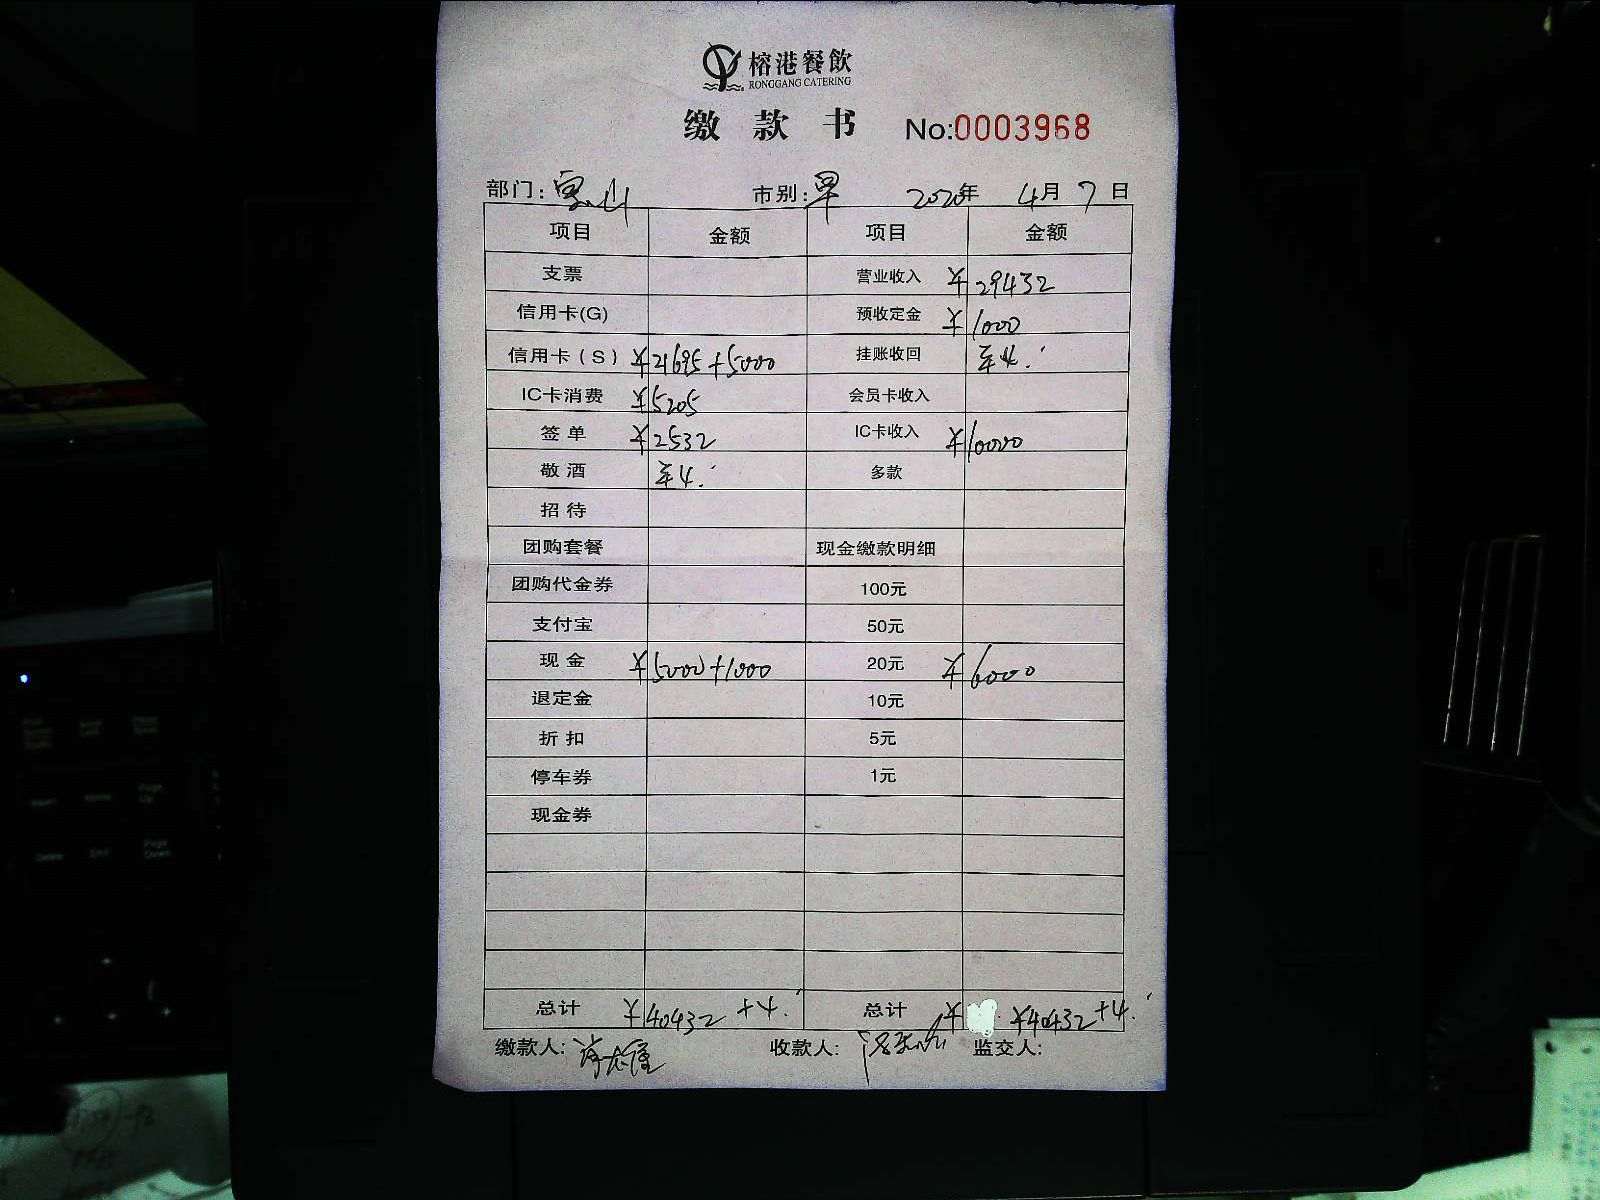 榕港餐飲
RONGGANG CATERING
缴 款 书 No:0003968
部门: 宝山 市别: 早 2020年 4月 7日
项目 金额 项目 金额
支票 营业收入 ¥29432
信用卡(G) 预收定金 ¥1000
信用卡(S) ¥21695+5000 挂账收回
IC卡消费 ¥5205 会员卡收入
签单 ¥2532 IC卡收入 ¥10000
敬酒 多款
招待
团购套餐 现金缴款明细
团购代金券 100元
支付宝 50元
现金 ¥5000+1000 20元 ¥6000
退定金 10元
折扣 5元
停车券 1元
现金券
总计 ¥40432 总计 ¥ ¥40432
缴款人: 收款人: 监交人: